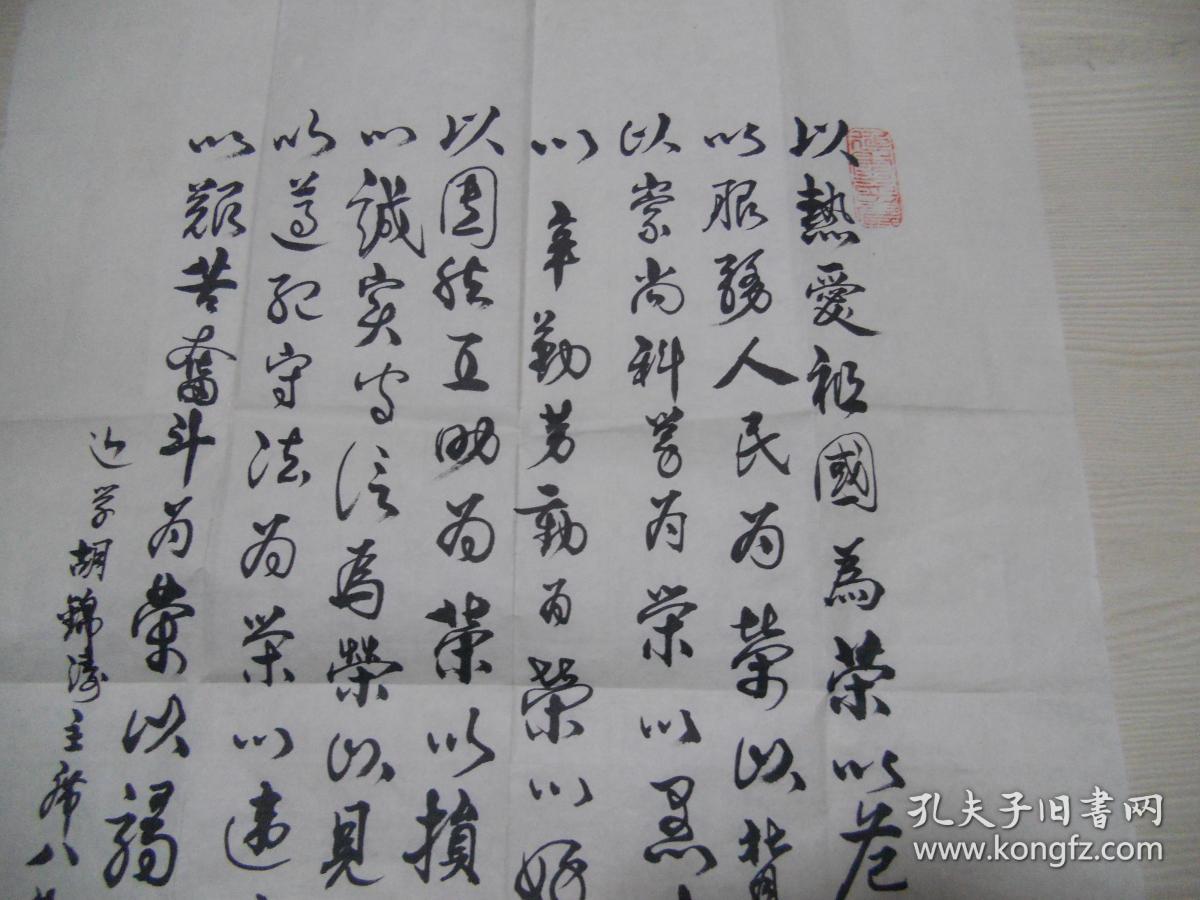 以熱愛祖國為榮以危
以服務人民为榮以背
以崇尚科学为荣以愚
以辛勤劳動为榮以好
以團结互助为荣以損
以誠实守信為榮以見
以遵纪守法为荣以違
以艱苦奮斗为榮以驕
近学胡錦濤主席八
孔夫子旧書网
www.kongfz.com